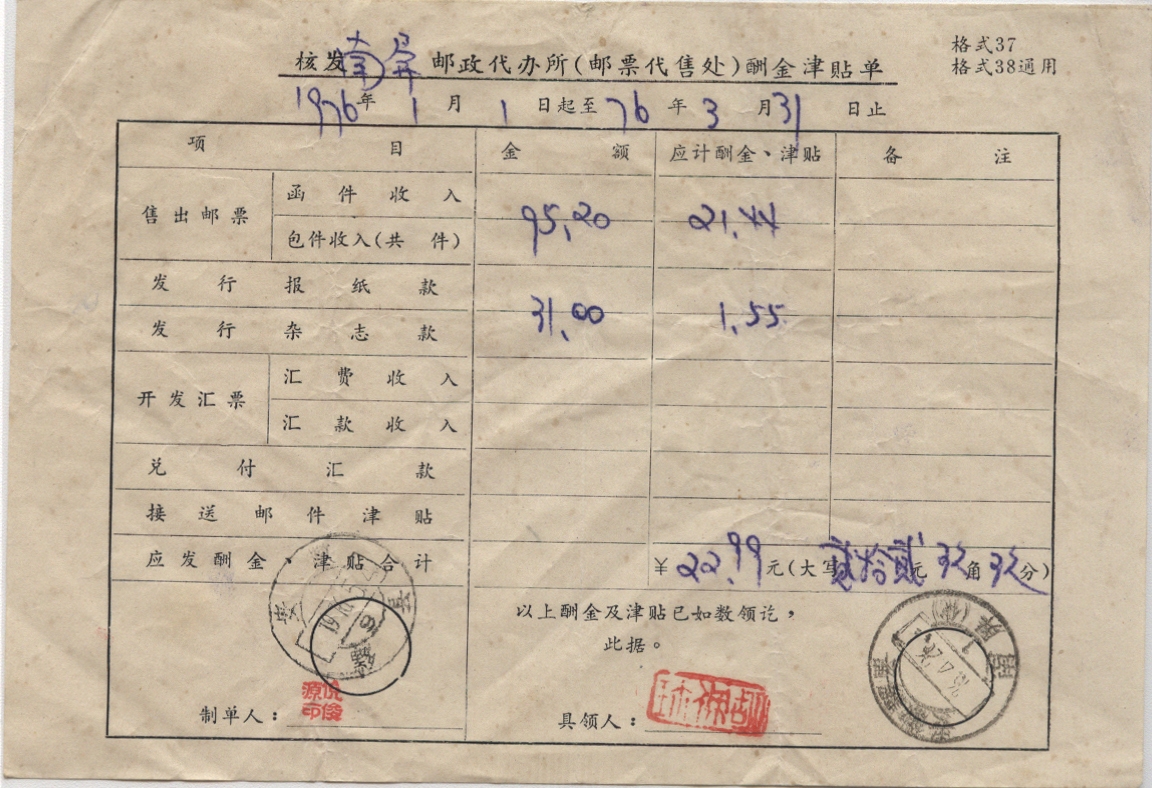 格式37
格式38通用
核发南屏邮政代办所(邮票代售处)酬金津贴单
1976年1月1日起至76年3月31日止
项目 金额 应计酬金、津贴 备注
售出邮票 函件收入
包件收入(共 件) 95,20 21.44
发行报纸款
发行杂志款 31,00 1.55
开发汇票 汇费收入
汇款收入
兑付汇款
接送邮件津贴
应发酬金、津贴合计 ¥22.99元(大写贰拾贰元玖角玖分)
以上酬金及津贴已如数领讫,
此据。
制单人:
具领人: